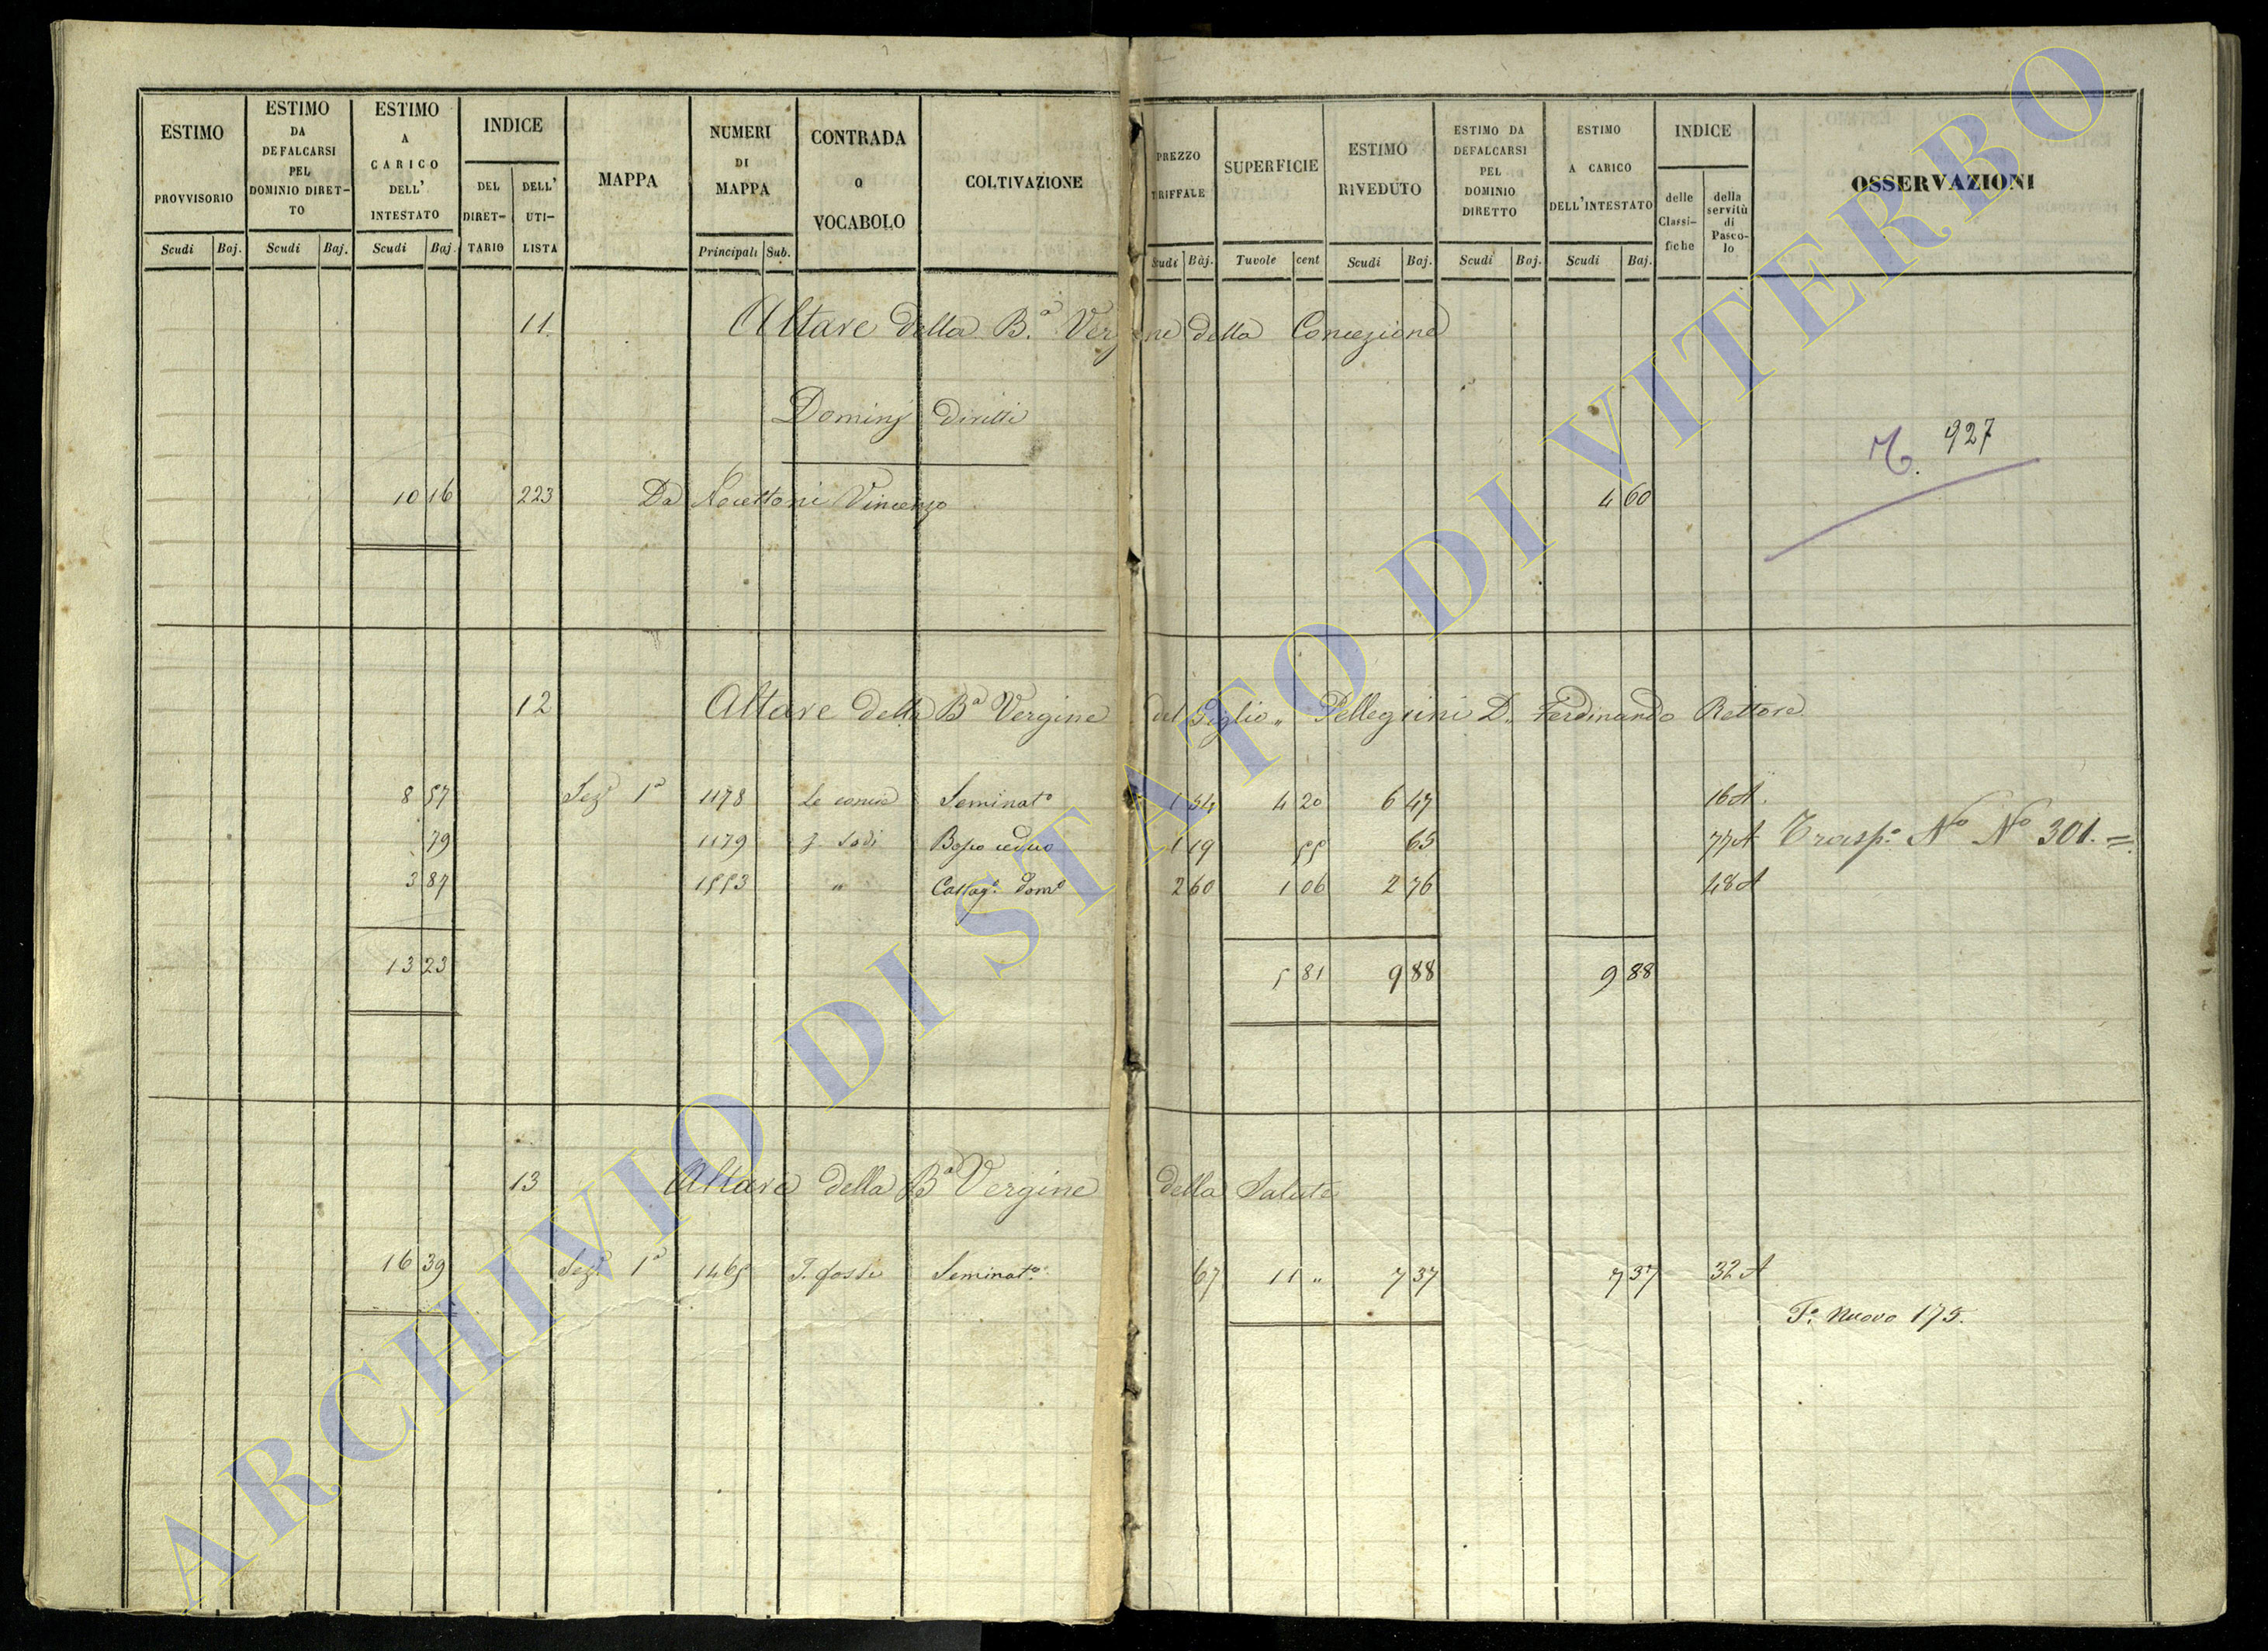 ESTIMO PROVVISORIO Scudi Baj.
ESTIMO DA DEFALCARSI PEL DOMINIO DIRET- TO Scudi Baj.
ESTIMO A CARICO DELL' INTESTATO Scudi Baj.
INDICE DEL DIRET- TARIO DELL' UTI- LISTA
MAPPA
NUMERI DI MAPPA Principali Sub.
CONTRADA O VOCABOLO
COLTIVAZIONE
PREZZO TRIFFALE Scudi Baj.
SUPERFICIE Tavole cent
ESTIMO RIVEDUTO Scudi Baj.
ESTIMO DA DEFALCARSI PEL DOMINIO DIRETTO Scudi Baj.
ESTIMO A CARICO DELL'INTESTATO Scudi Baj.
INDICE delle Classi- fiche della servitù di Pasco- lo
OSSERVAZIONI
11. Altare della B.a Vergine della Concezione
Dominj diretti
927
10 16 223 Da Vincenzo 4 60
12 Altare della Ba Vergine del Giglio „ Pellegrini D. Ferdinando Rettore
8 57 Sez. 1a 1178 Le conce Seminato 1 54 4 20 6 47 16 A.
79 1179 Sodi Bosco ceduo 1 19 55 65 77 A Trasp.o No No 301. =
3 87 1553 „ Castag.o Dom.o 2 60 1 06 2 76 48 A
13 23 5 81 9 88 9 88
13 Altare della Ba Vergine della Salute
16 39 Sez. 1a 1465 Seminat.o 67 11 „ 7 37 7 37 32 A
T.o Nuovo 175.
ARCHIVIO DI STATO DI VITERBO